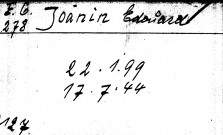 E. C. Joanin Edouard
278
22.1.99
17.7.44
127